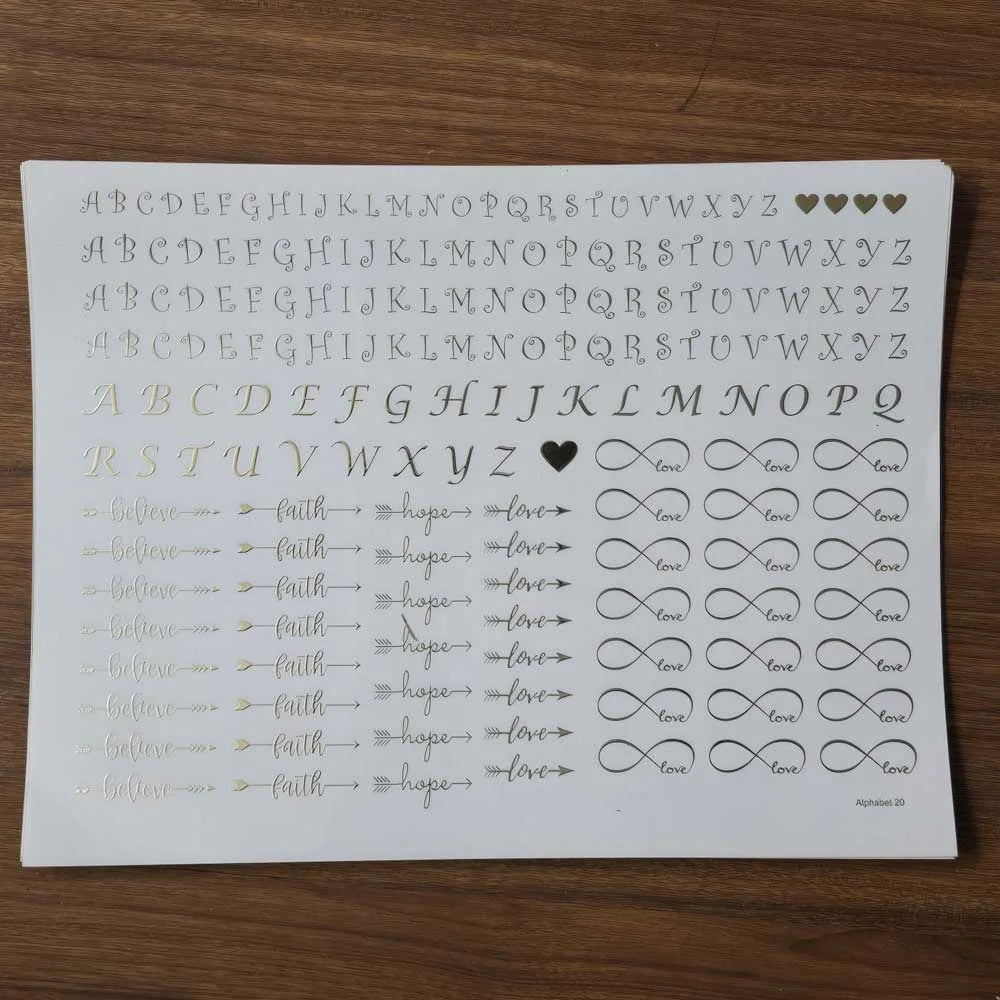 A B C D E F G H I J K L M N O P Q R S T U V W X Y Z
A B C D E F G H I J K L M N O P Q R S T U V W X Y Z
A B C D E F G H I J K L M N O P Q R S T U V W X Y Z
A B C D E F G H I J K L M N O P Q R S T U V W X Y Z
A B C D E F G H I J K L M N O P Q
R S T U V W X Y Z love love love
believe faith hope love
believe faith hope love
believe faith hope love
believe faith hope love
believe faith hope love
believe faith hope love
believe faith hope love
believe faith hope love
love love love
love love love
love love love
love love love
love love love
love love love
Alphabet 20